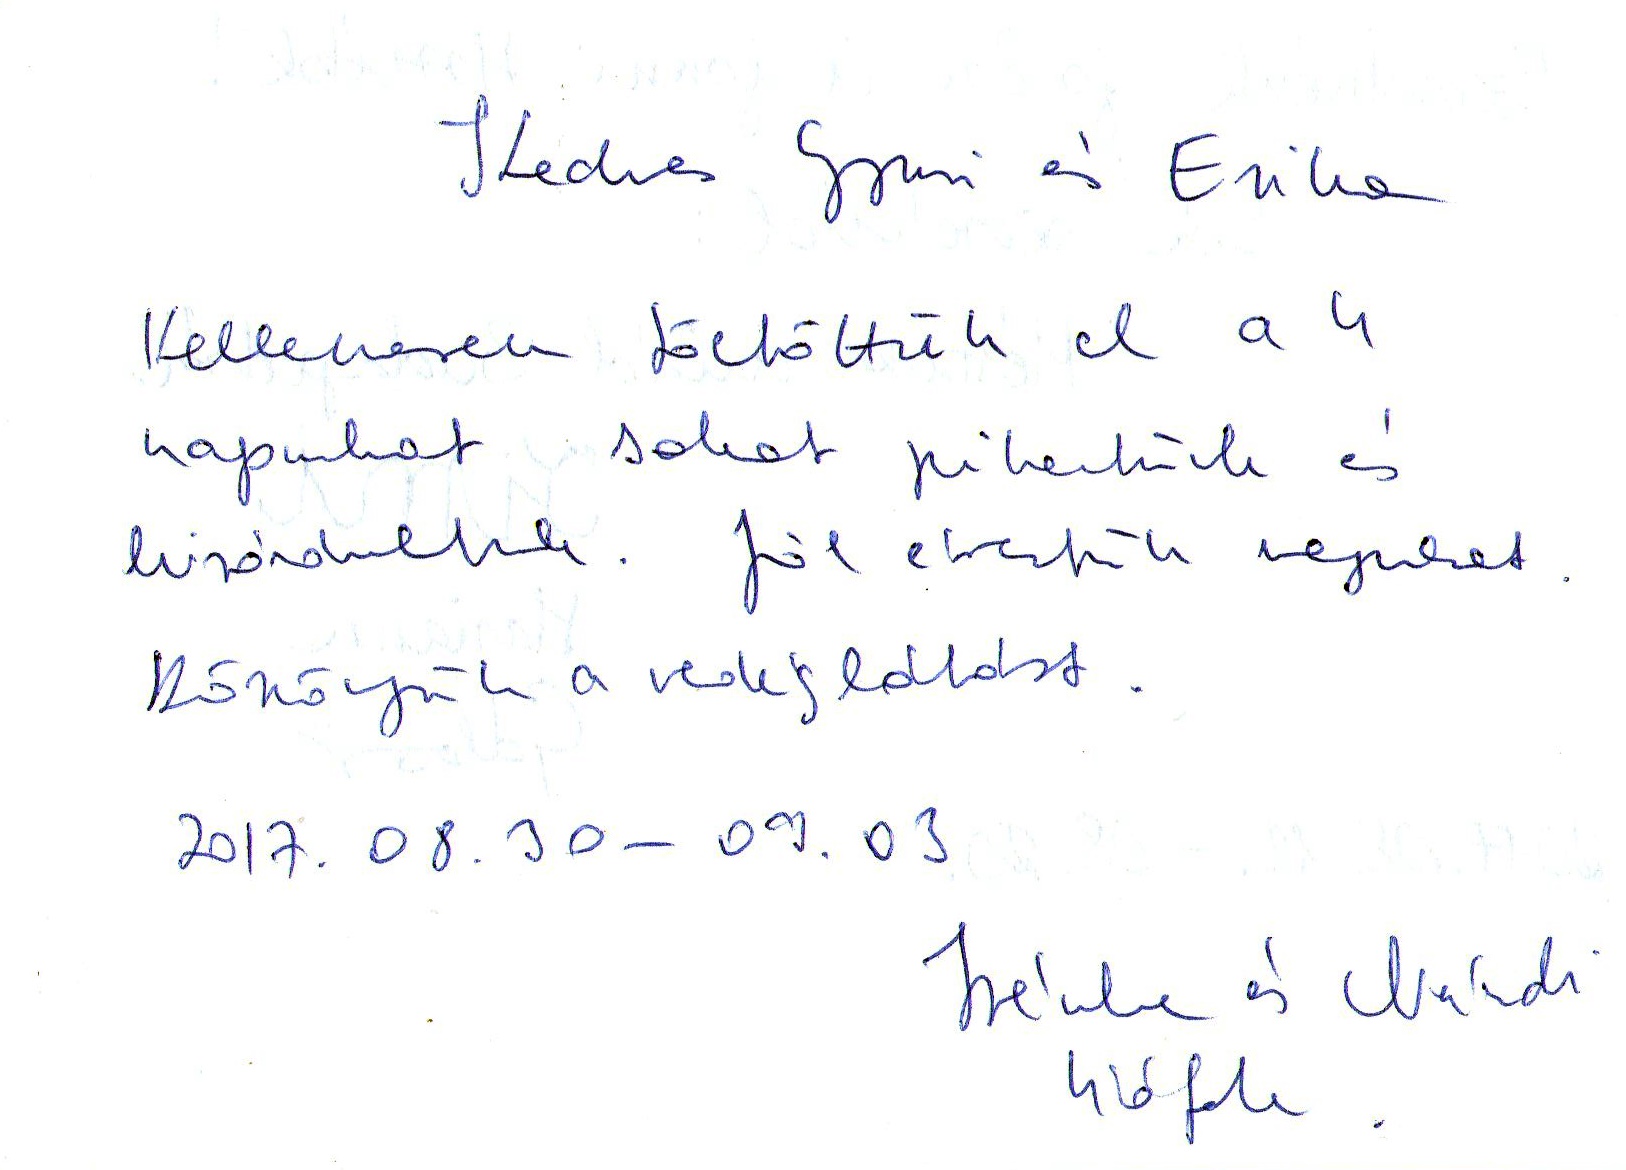 Kedves Gyuri és Erika
Kellemesen töltöttük el a 4
napunkat sokat pihentünk és
kirándultunk. Jól éreztük magunkat.
Köszönjük a vendéglátást.
2017. 08. 30 – 09. 03
Irénke és Nándi